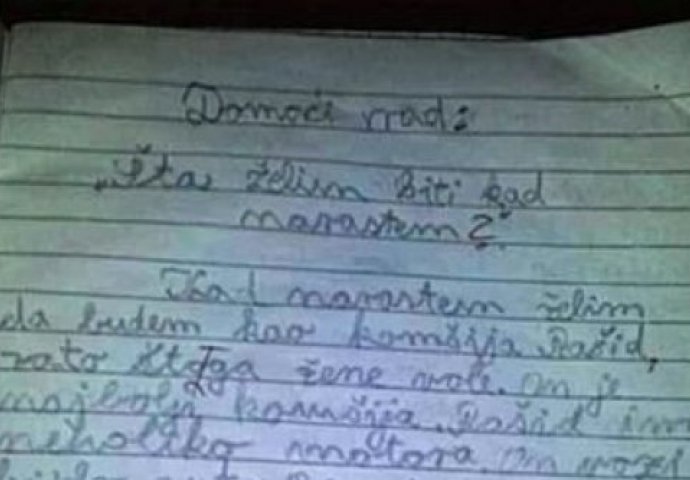 Domaći rad:
„Šta želim biti kad
narastem?"
Kad narastem želim
da budem kao komšija Rašid,
zato što ga žene vole. On je
najbolji komšija. Rašid im
nekoliko motora. On vozi